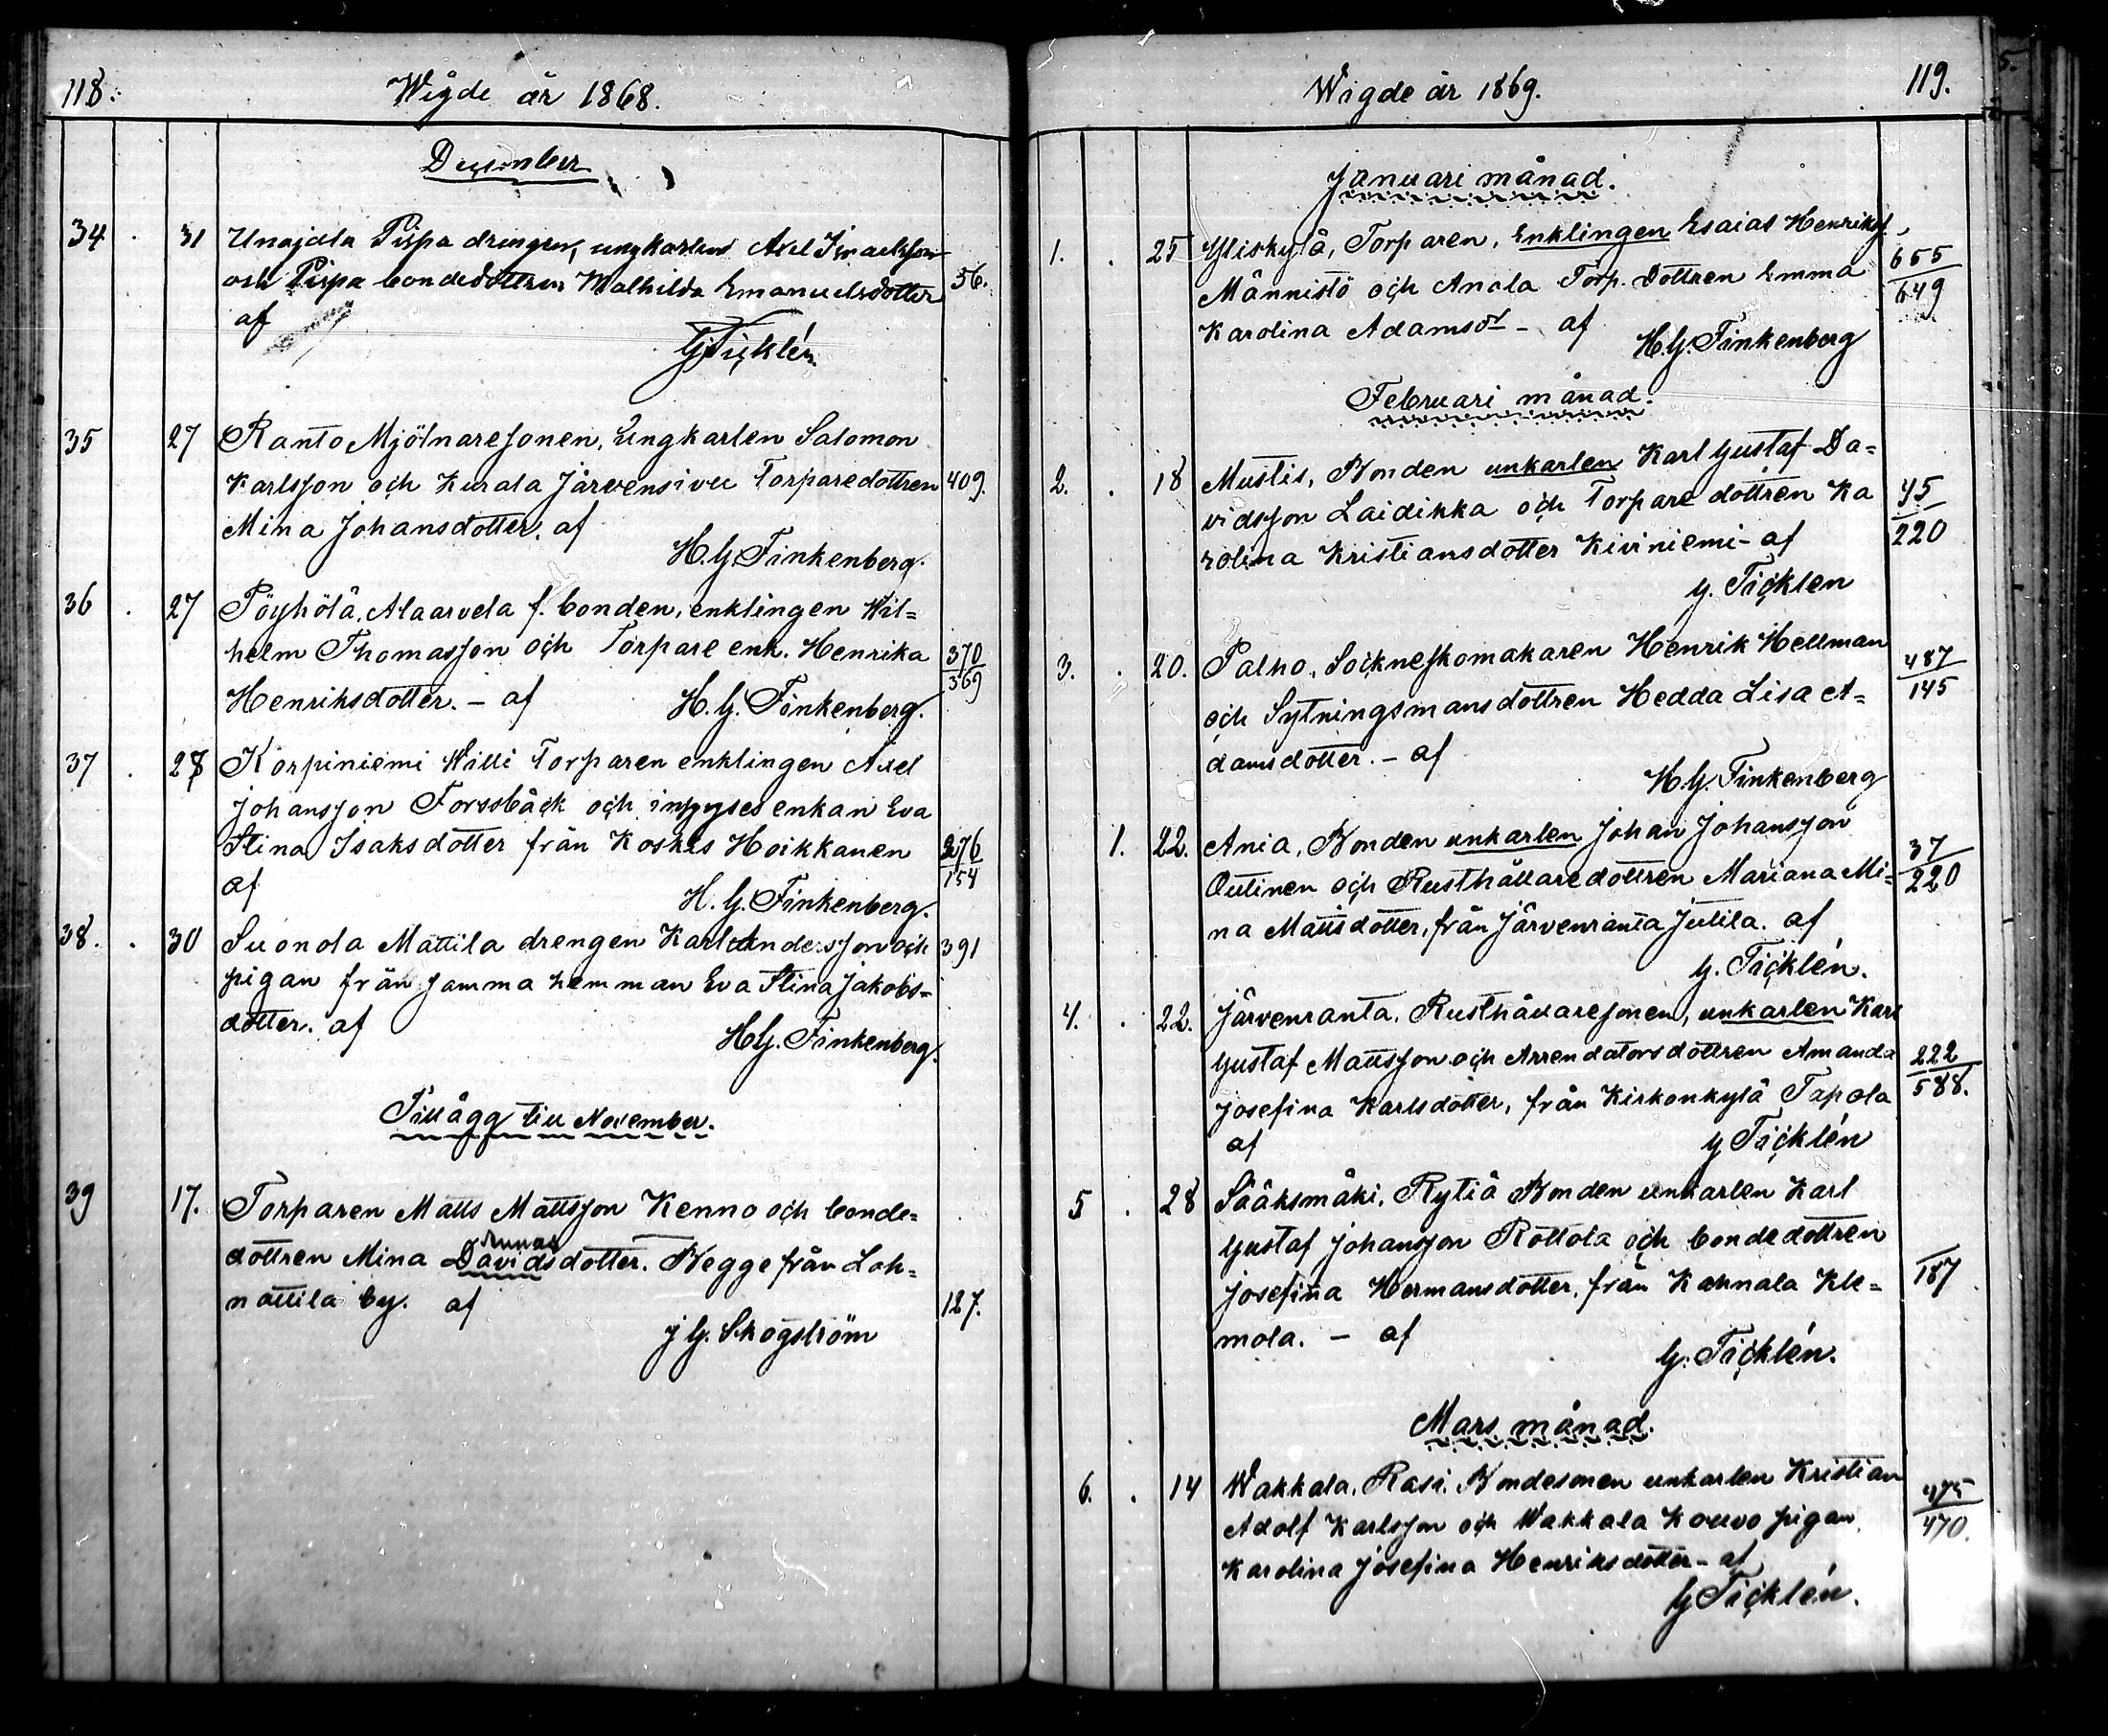 118.
Wigde år 1868.
December
34 . 31 Unajala Pispa drengen, ungkarlen Axel Isra
och Pispa bondedottren Mathilda Emanuelsdotter 56.
af
G Ticklén.
35 27 Ranto Mjölnaresonen, Ungkarlen Salomon
Karlsson och Kurala Järvensivu Torparedottren 409.
Mina Johansdotter. af
H. G. Finkenberg.
36 . 27 Pöyhölä, Alaarvela f. bonden, enklingen Wil=
helm Thomasson och Torpare enk. Henrika 370
Henriksdotter. – af 369
H. G. Finkenberg.
37 . 27 Korpiniemi Willi Torparen enklingen Axel
Johansson Forssbäck och inhyses enkan Eva
Stina Isaksdotter från Koskis Hoikkanen 276
af 154
H. G. Finkenberg.
38. . 30 Suonola Mattila drengen Karl Andersson och 391
pigan från samma hemman Eva Stina Jakobs=
dotter. af
H G. Finkenberg.
Tillägg till November.
39 17. Torparen Matts Mattsson Kenno och bonde=
dottren Mina Davidsdotter. Begge från Loh=
nottila by. af 127.
J G. Skogström
119.
Wigde år 1869.
Januari månad.
1. . 25 Yliskylä, Torparen, Enklingen Esaias Henrikss. 655
Männistö och Anola Torp. Dottren Emma 649
Karolina Adamsdt – af
H. G. Finkenberg
Februari månad.
2. . 18 Mustis, Bonden unkarlen Karl Gustaf Da=
vidsson Laidikka och Torpare dottren Ka 45
rolina Kristiansdotter Kiviniemi – af 220
G. Ticklen
3. . 20. Palho, Sockneskomakaren Henrik Hellman 487
och Sytningsmansdottren Hedda Lisa A= 145
damsdotter. – af
H G. Finkenberg
1. 22. Ania, Bonden unkarlen Johan Johansson 37
Outinen och Rusthållaredottren Mariana Mi= 220
na Mattsdotter, från Järvenranta Jutila. af
G. Ticklén.
4. . 22. Järvenranta, Rusthållaresonen, unkarlen Karl
Gustaf Mattsson och Arrendatorsdottren Amanda 222
Josefina Karlsdotter, från Kirkonkylä Tapola 588.
af
G Ticklén
5 . 28 Sääksmäki, Rytiä Bonden unkarlen Karl
Gustaf Johansson Rottola och bondedottren
Josefina Hermansdotter, från Kannala Kle= 187
mola. – af
G. Ticklén.
Mars månad.
6. . 14 Wakkala, Rasi. Bondesonen unkarlen Kristian 475
Adolf Karlsson och Wakkala Kouvo pigan 470.
Karolina Josefina Henriksdotter – af
G Ticklén.